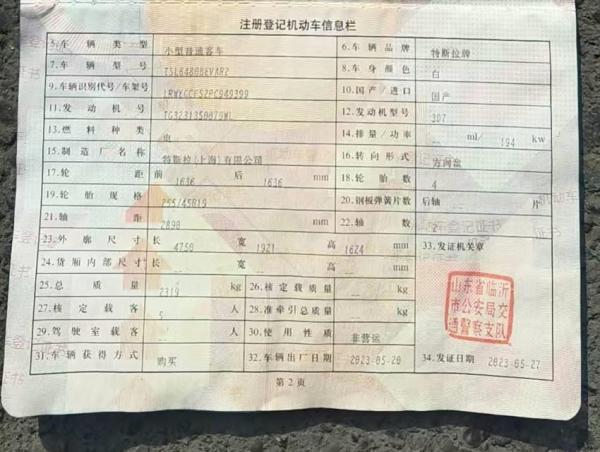 注册登记机动车信息栏
5.车辆类型 小型普通客车 6.车辆品牌 特斯拉牌
7.车辆型号 TSL6480BEVAR2 8.车身颜色 白
9.车辆识别代号/车架号 10.国产/进口 国产
11.发动机号 12.发动机型号 3D7
13.燃料种类 电 14.排量/功率 -- ml/ 194 kw
15.制造厂名称 特斯拉(上海)有限公司 16.转向形式 方向盘
17.轮距 前 1636 后 1636 mm 18.轮胎数 4
19.轮胎规格 255/45R19 20.钢板弹簧片数 后轴 -- 片
21.轴距 2890 mm 22.轴数
23.外廓尺寸 长 4750 宽 1921 高 1624 mm 33.发证机关章
24.货厢内部尺寸 长 -- 宽 -- 高 -- mm
25.总质量 2319 kg 26.核定载质量 -- kg
27.核定载客 5 人 28.准牵引总质量 -- kg
29.驾驶室载客 -- 人 30.使用性质 非营运
31.车辆获得方式 购买 32.车辆出厂日期 2023-05-20 34.发证日期 2023-05-27
山东省临沂
市公安局交
通警察支队
第2页